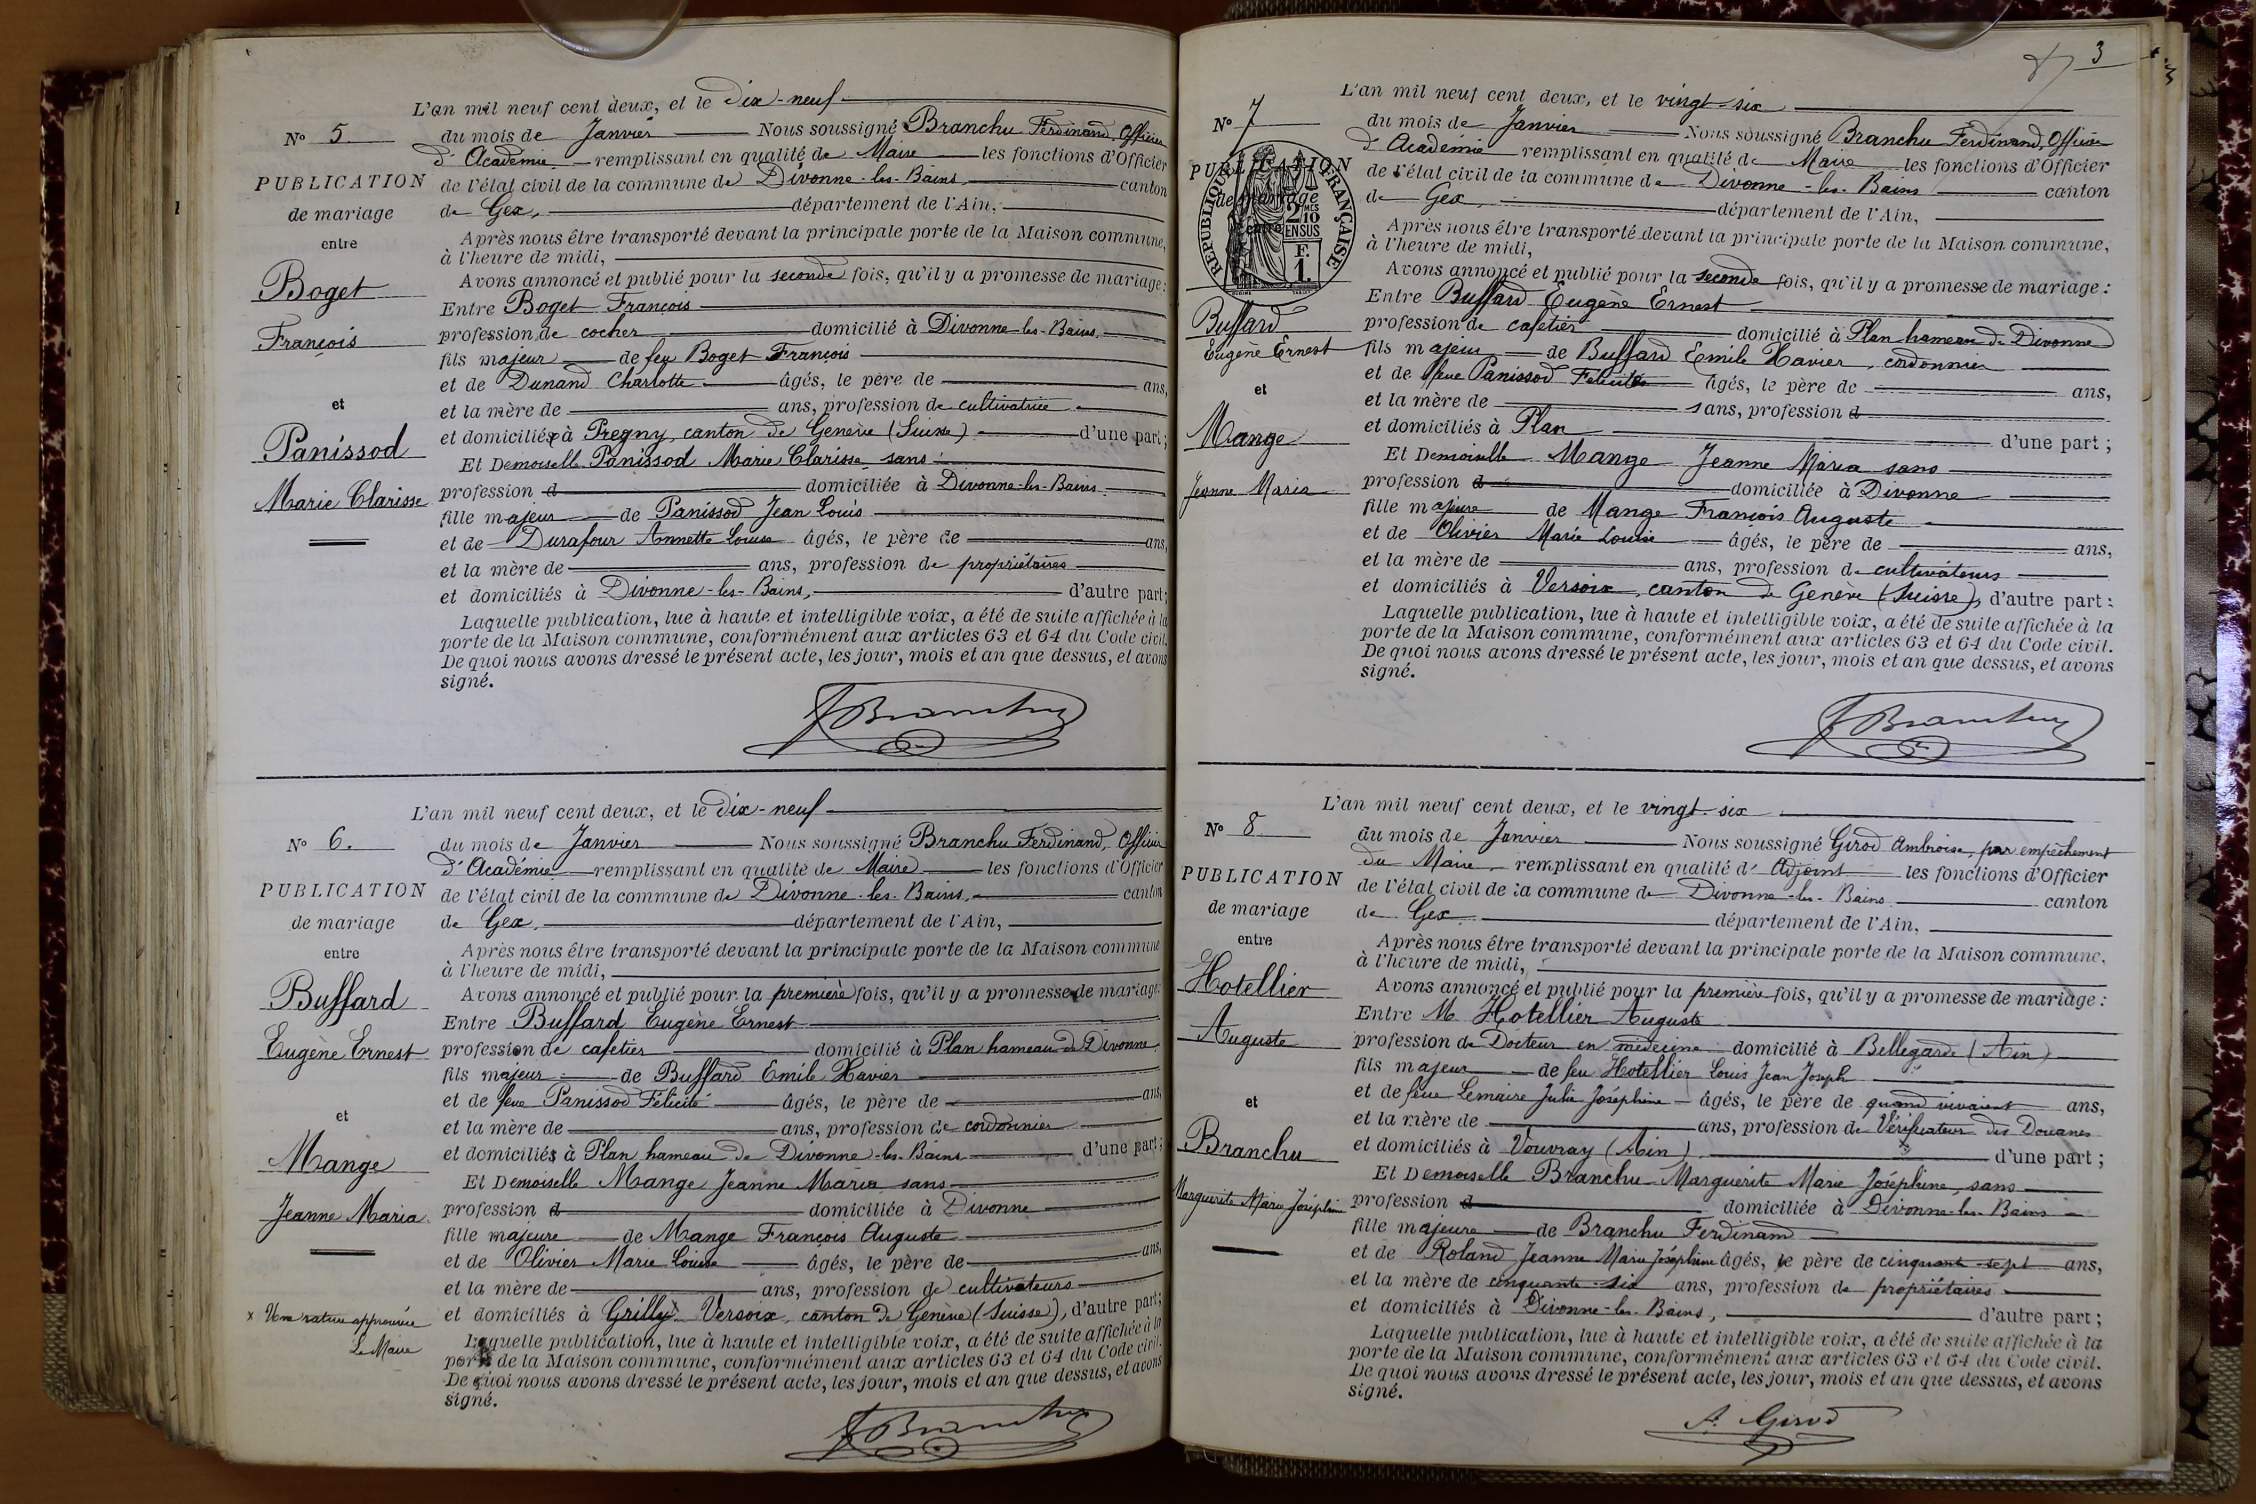 L'an mil neuf cent deux, et le Dix-neuf
N° 5.
du mois de Janvier Nous soussigné Branchu Ferdinand, Officier
d'Académie remplissant en qualité de Maire les fonctions d'Officier
PUBLICATION
de l'état civil de la commune de Divonne-les-Bains, canton
de mariage
de Gex, département de l'Ain,
entre
Après nous être transporté devant la principale porte de la Maison commune,
à l'heure de midi,
Boget
Avons annoncé et publié pour la seconde fois, qu'il y a promesse de mariage :
Entre Boget François
François
profession de cocher domicilié à Divonne-les-Bains,
fils majeur de feu Boget François
et de Dunand Charlotte âgés, le père de ans,
et
et la mère de ans, profession de cultivatrice
Panissod
et domiciliés à Pregny, canton de Genève (Suisse) d'une part ;
Et Demoiselle Panissod Marie Clarisse sans
Marie Clarisse
profession d domiciliée à Divonne-les-Bains
fille majeur de Panissod Jean Louis
et de Durafour Annette Louise âgés, le père de ans,
et la mère de ans, profession de propriétaires
et domiciliés à Divonne-les-Bains, d'autre part ;
Laquelle publication, lue à haute et intelligible voix, a été de suite affichée à la
porte de la Maison commune, conformément aux articles 63 et 64 du Code civil.
De quoi nous avons dressé le présent acte, les jour, mois et an que dessus, et avons
signé.
F Branchu
L'an mil neuf cent deux, et le Dix-neuf
N° 6.
du mois de Janvier Nous soussigné Branchu Ferdinand, Officier
d'Académie remplissant en qualité de Maire les fonctions d'Officier
PUBLICATION
de l'état civil de la commune de Divonne-les-Bains, canton
de mariage
de Gex, département de l'Ain,
entre
Après nous être transporté devant la principale porte de la Maison commune
à l'heure de midi,
Buffard
Avons annoncé et publié pour la première fois, qu'il y a promesse de mariage
Entre Buffard Eugène Ernest
Eugène Ernest
profession de cafetier domicilié à Plan hameau de Divonne
fils majeur de Buffard Emile Xavier
et de feue Panissod Félicité âgés, le père de ans,
et
et la mère de ans, profession de cordonnier
Mange
et domiciliés à Plan hameau de Divonne-les-Bains d'une part ;
Et Demoiselle Mange Jeanne Maria sans
Jeanne Maria
profession d domiciliée à Divonne
fille majeure de Mange François Auguste
et de Olivier Marie Louise âgés, le père de ans,
et la mère de ans, profession de cultivateurs
x Une rature approuvée
Le Maire
et domiciliés à Grilly Versoix, canton de Genève (Suisse), d'autre part ;
Laquelle publication, lue à haute et intelligible voix, a été de suite affichée à la
porte de la Maison commune, conformément aux articles 63 et 64 du Code civil.
De quoi nous avons dressé le présent acte, les jour, mois et an que dessus, et avons
signé.
F Branchu
3
L'an mil neuf cent deux, et le vingt-six
N° 7
du mois de Janvier Nous soussigné Branchu Ferdinand, Officier
d'Académie remplissant en qualité de Maire les fonctions d'Officier
PUBLICATION
de l'état civil de la commune de Divonne-les-Bains canton
de mariage
de Gex, département de l'Ain,
entre
RÉPUBLIQUE FRANÇAISE
2 MES
10
EN SUS
F.
1.
Après nous être transporté devant la principale porte de la Maison commune,
à l'heure de midi,
Avons annoncé et publié pour la seconde fois, qu'il y a promesse de mariage :
Entre Buffard Eugène Ernest
Buffard
profession de cafetier domicilié à Plan hameau de Divonne
Eugène Ernest
fils majeur de Buffard Emile Xavier, cordonnier
et de feue Panissod Félicité âgés, le père de ans,
et
et la mère de sans, profession d
Mange
et domiciliés à Plan d'une part ;
Et Demoiselle Mange Jeanne Maria sans
Jeanne Maria
profession d domiciliée à Divonne
fille majeure de Mange François Auguste
et de Olivier Marie Louise âgés, le père de ans,
et la mère de ans, profession de cultivateurs
et domiciliés à Versoix, canton de Genève (Suisse), d'autre part :
Laquelle publication, lue à haute et intelligible voix, a été de suite affichée à la
porte de la Maison commune, conformément aux articles 63 et 64 du Code civil.
De quoi nous avons dressé le présent acte, les jour, mois et an que dessus, et avons
signé.
F Branchu
L'an mil neuf cent deux, et le vingt-six
N° 8
du mois de Janvier Nous soussigné Girod Ambroise, par empêchement
du Maire, remplissant en qualité d'Adjoint les fonctions d'Officier
PUBLICATION
de l'état civil de la commune de Divonne-les-Bains canton
de mariage
de Gex département de l'Ain,
entre
Après nous être transporté devant la principale porte de la Maison commune,
à l'heure de midi,
Hotellier
Avons annoncé et publié pour la première fois, qu'il y a promesse de mariage :
Entre M. Hotellier Auguste
Auguste
profession de Docteur en médecine domicilié à Bellegarde (Ain)
fils majeur de feu Hotellier Louis Jean Joseph
et de feue Lemaire Julie Joséphine âgés, le père de quand vivaient ans,
et
et la mère de ans, profession de Vérificateur des Douanes
Branchu
et domiciliés à Vouvray (Ain) d'une part ;
Et Demoiselle Branchu Marguerite Marie Joséphine, sans
Marguerite Marie Joséphine
profession d domiciliée à Divonne-les-Bains
fille majeure de Branchu Ferdinand
et de Roland Jeanne Marie Joséphine âgés, le père de cinquante-sept ans,
et la mère de cinquante-six ans, profession de propriétaires
et domiciliés à Divonne-les-Bains, d'autre part ;
Laquelle publication, lue à haute et intelligible voix, a été de suite affichée à la
porte de la Maison commune, conformément aux articles 63 et 64 du Code civil.
De quoi nous avons dressé le présent acte, les jour, mois et an que dessus, et avons
signé.
A. Girod